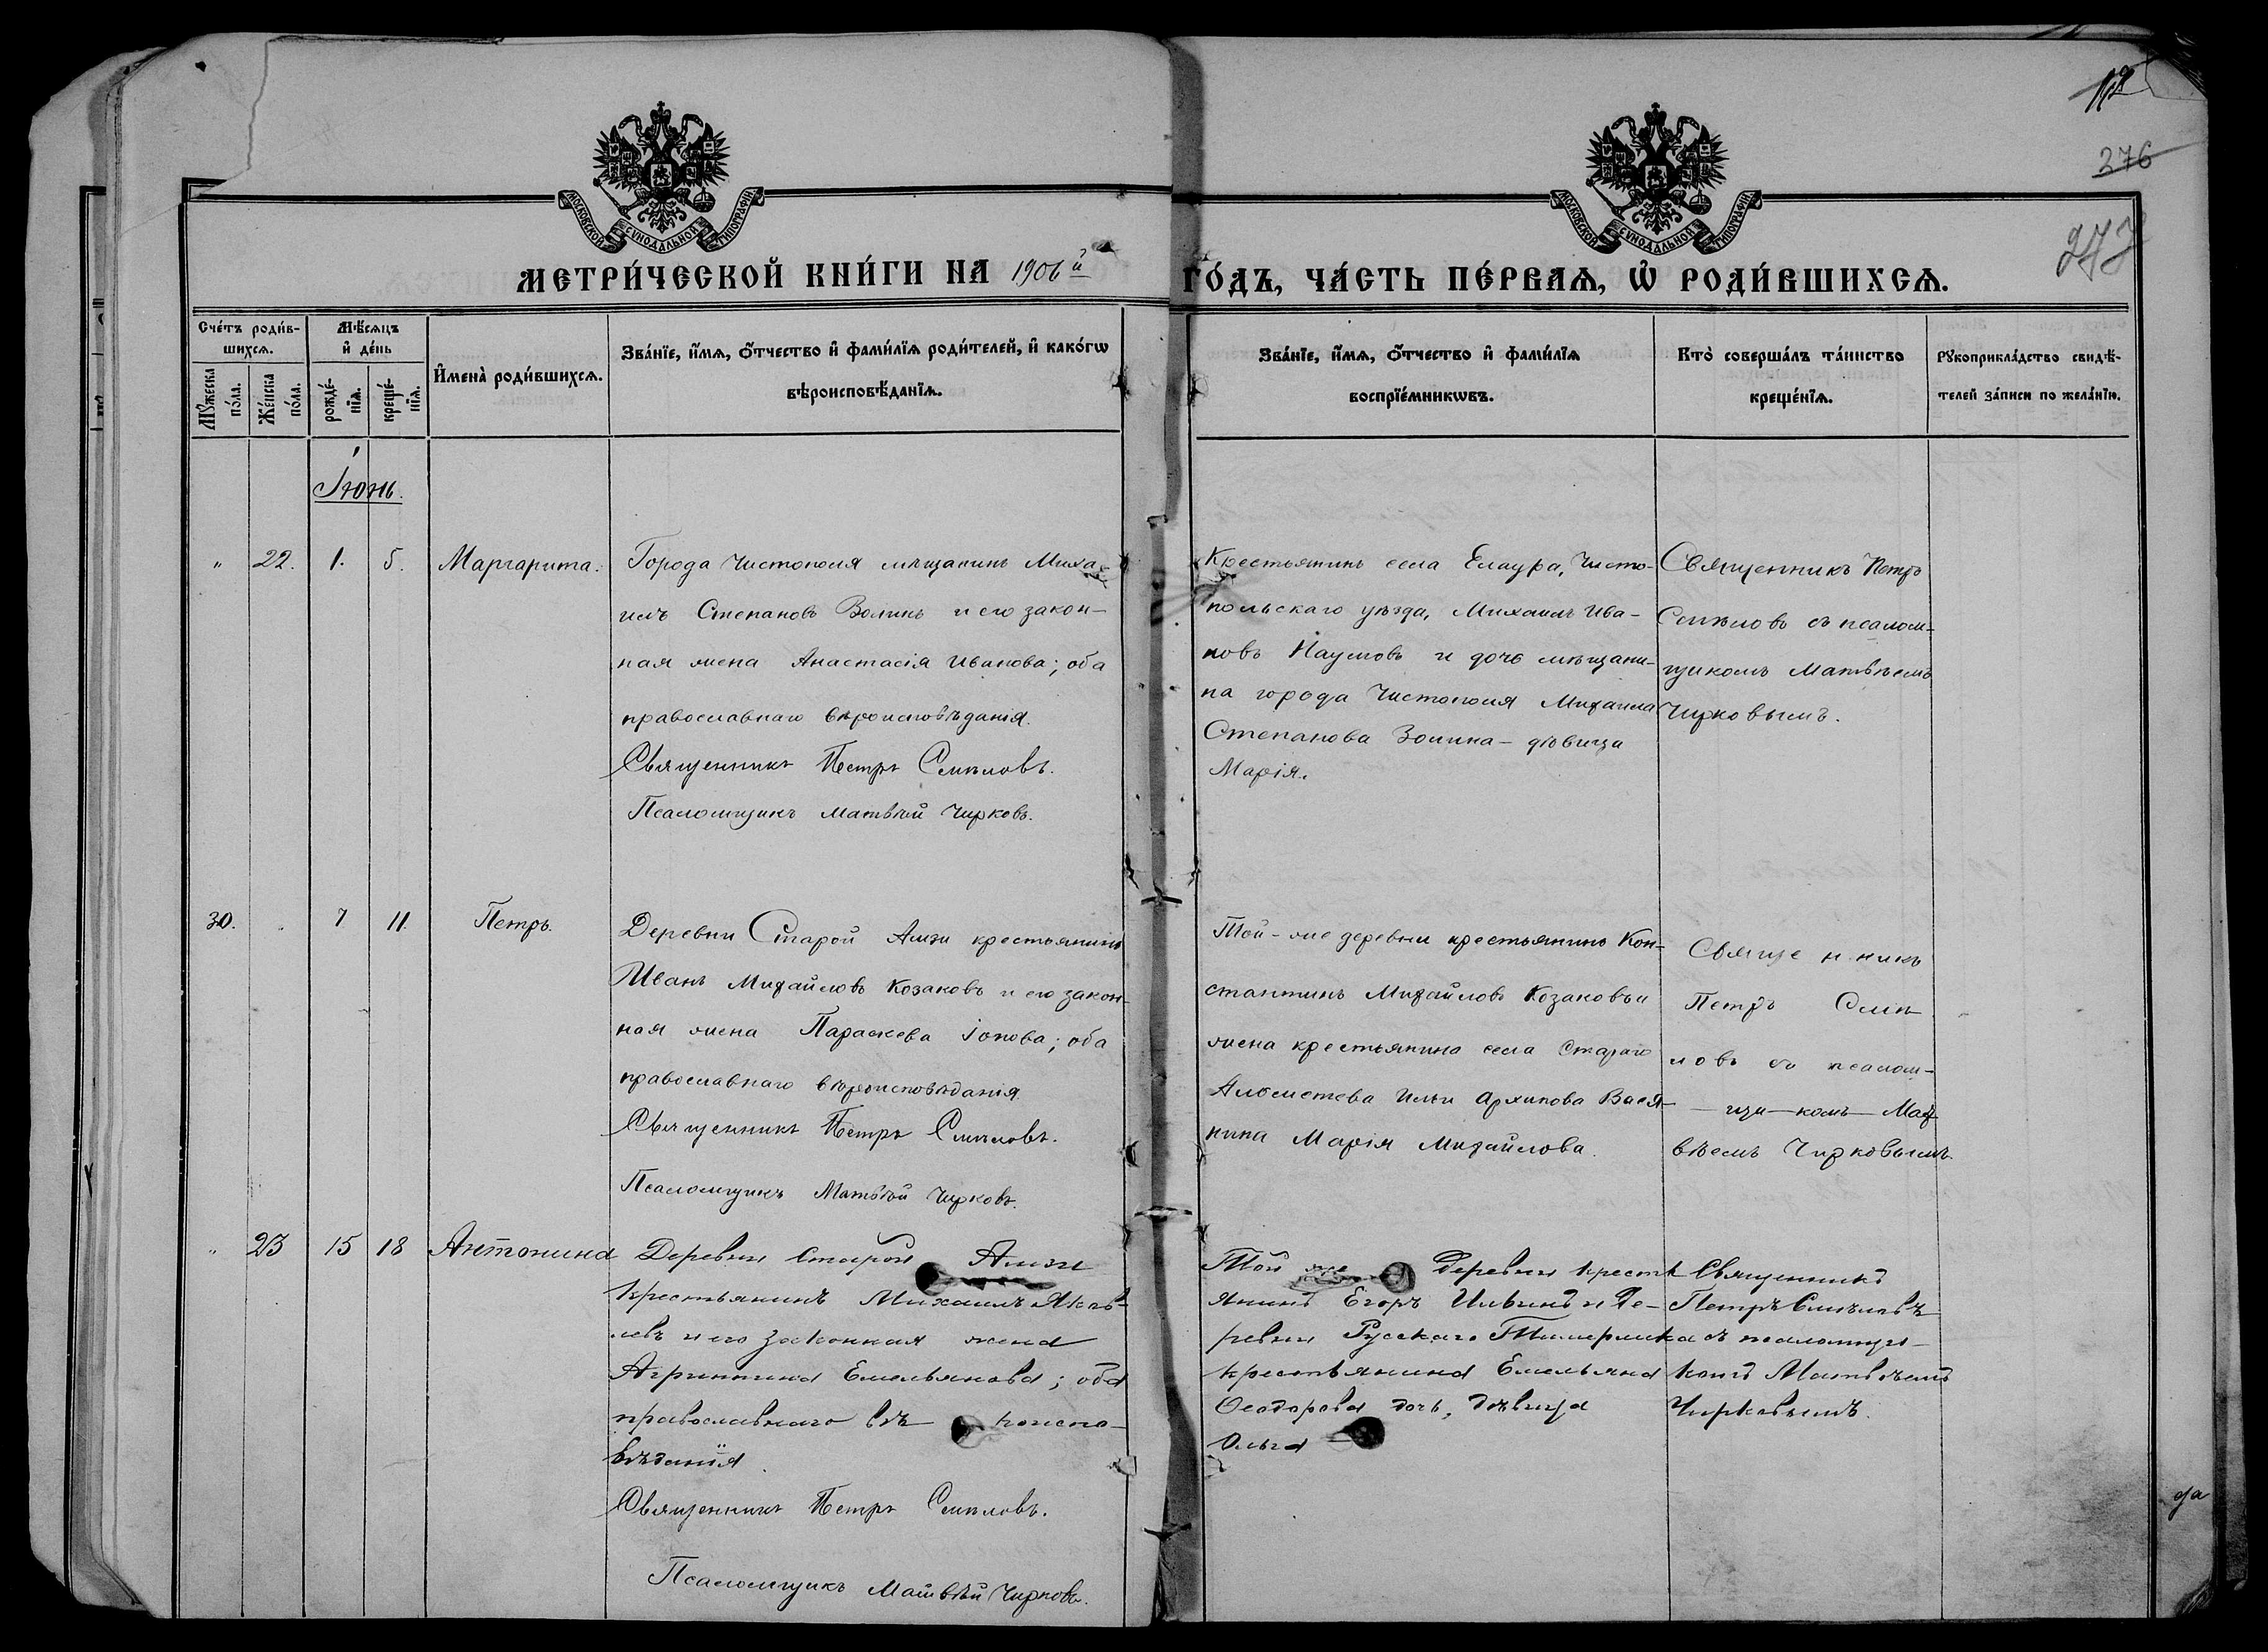 12
276
277
МОСКОВСКОЙ СУНОДАЛЬНОЙ ТИПОГРАФІИ
МОСКОВСКОЙ СУНОДАЛЬНОЙ ТИПОГРАФІИ
МЕТРИ́ЧЕСКОЙ КНИ́ГИ НА 1906й ГО́ДЪ, ЧА́СТЬ ПЕ́РВАѦ, Ѡ҆ РОДИ́ВШИХСѦ.
Сче́тъ роди́в-
шихсѧ.
Мꙋ́жеска по́ла.
Же́нска по́ла.
Мѣ́сѧцъ
и҆ де́нь
рожде́-
нїѧ.
креще́-
нїѧ.
И҆мена̀ роди́вшихсѧ.
Зва́нїе, и҆́мѧ, ѻ҆́тчество и҆ фами́лїѧ роди́телей, и҆ како́гѡ
вѣроисповѣ́данїѧ.
Зва́нїе, и҆́мѧ, ѻ҆́тчество и҆ фами́лїѧ
воспрїе́мникѡвъ.
Кто̀ соверша́лъ та́инство
креще́нїѧ.
Рꙋкоприкла́дство свидѣ́-
телей за́писи по жела́нїю.
Іюнь.
" 22. 1. 5. Маргарита.
Города Чистополя мѣщанинъ Миха-
илъ Степановъ Золинъ и его закон-
ная жена Анастасія Иванова; оба
православнаго вѣроисповѣданія.
Священникъ Петръ Смѣловъ.
Псаломщикъ Матвѣй Чирковъ.
Крестьянинъ села Елаура, Чисто-
польскаго уѣзда, Михаилъ Ива-
новъ Наумовъ и дочь мѣщани-
на города Чистополя Михаила
Степанова Золина - дѣвица
Марія.
Священникъ Петръ
Смѣловъ съ псалом-
щикомъ Матвѣемъ
Чирковымъ.
30. 7 11. Петръ.
Деревни Старой Амзи крестьянинъ
Иванъ Михайловъ Козаковъ и его закон-
ная жена Параскева Іонова; оба
православнаго вѣроисповѣданія.
Священникъ Петръ Смѣловъ.
Псаломщикъ Матвѣй Чирковъ.
Той-же деревни крестьянинъ Кон-
стантинъ Михайловъ Козаковъ и
жена крестьянина села Стараго
Альметева Ильи Архипова Вася-
нина Марія Михайлова.
Священникъ
Петръ Смѣ
ловъ съ псалом-
- щи-комъ Мат
вѣемъ Чирковымъ.
" 23 15 18 Антонина
Деревни Старой Амзи
крестьянинъ Михаилъ Яков-
левъ и его законная жена
Агриппина Емельянова; оба
православнаго вѣ роиспо-
вѣданія.
Священникъ Петръ Смѣловъ.
Псаломщикъ Матвѣй Чирковъ.
Той же деревни кресть
янинъ Егоръ Ильинъ и де-
ревни Русскаго Тимерлика
крестьянина Емельяна
Ѳеодорова дочь, дѣвица
Ольга
Священникъ
Петръ Смѣловъ
съ псаломщи-
комъ Матвѣемъ
Чирковымъ.